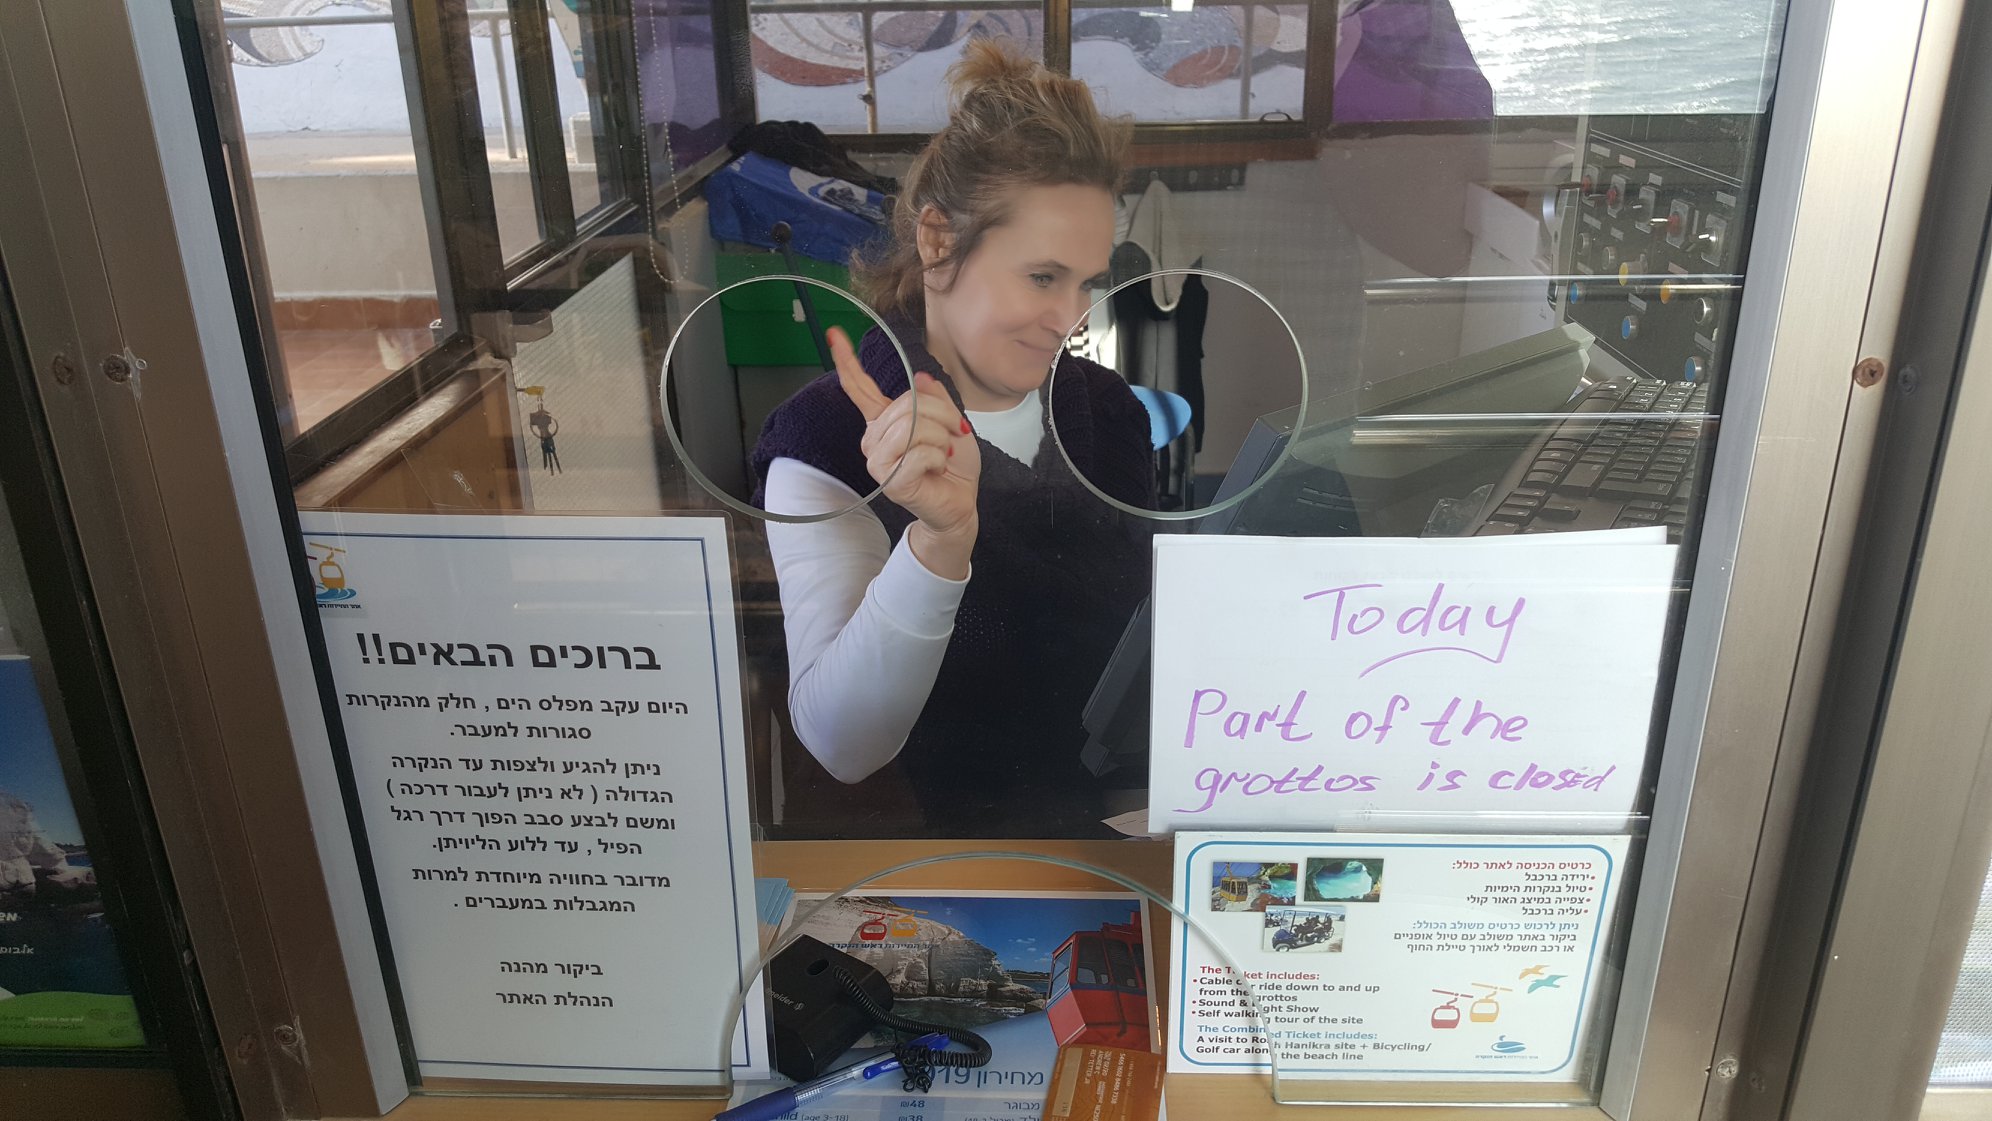 ברוכים הבאים!!
היום עקב מפלס הים , חלק מהנקרות
סגורות למעבר.
ניתן להגיע ולצפות עד הנקרה
הגדולה ( לא ניתן לעבור דרכה )
ומשם לבצע סבב הפוך דרך רגל
הפיל , עד ללוע הליויתן.
מדובר בחוויה מיוחדת למרות
המגבלות במעברים .
ביקור מהנה
הנהלת האתר
Today
Part of the
grottos is closed
כרטיס הכניסה לאתר כולל:
•ירידה ברכבל
•טיול בנקרות הימיות
•צפייה במיצג האור קולי
•עליה ברכבל
ניתן לרכוש כרטיס משולב הכולל:
ביקור באתר משולב עם טיול אופניים
או רכב חשמלי לאורך טיילת החוף
The Ticket includes:
• Cable car ride down to and up
from the grottos
• Sound & Light Show
• Self walking tour of the site
The Combined Ticket includes:
A visit to Rosh Hanikra site + Bicycling/
Golf car along the beach line
אתר התיירות ראש הנקרה
מחירון 2019
מבוגר
₪48
(age 3-18)
₪38